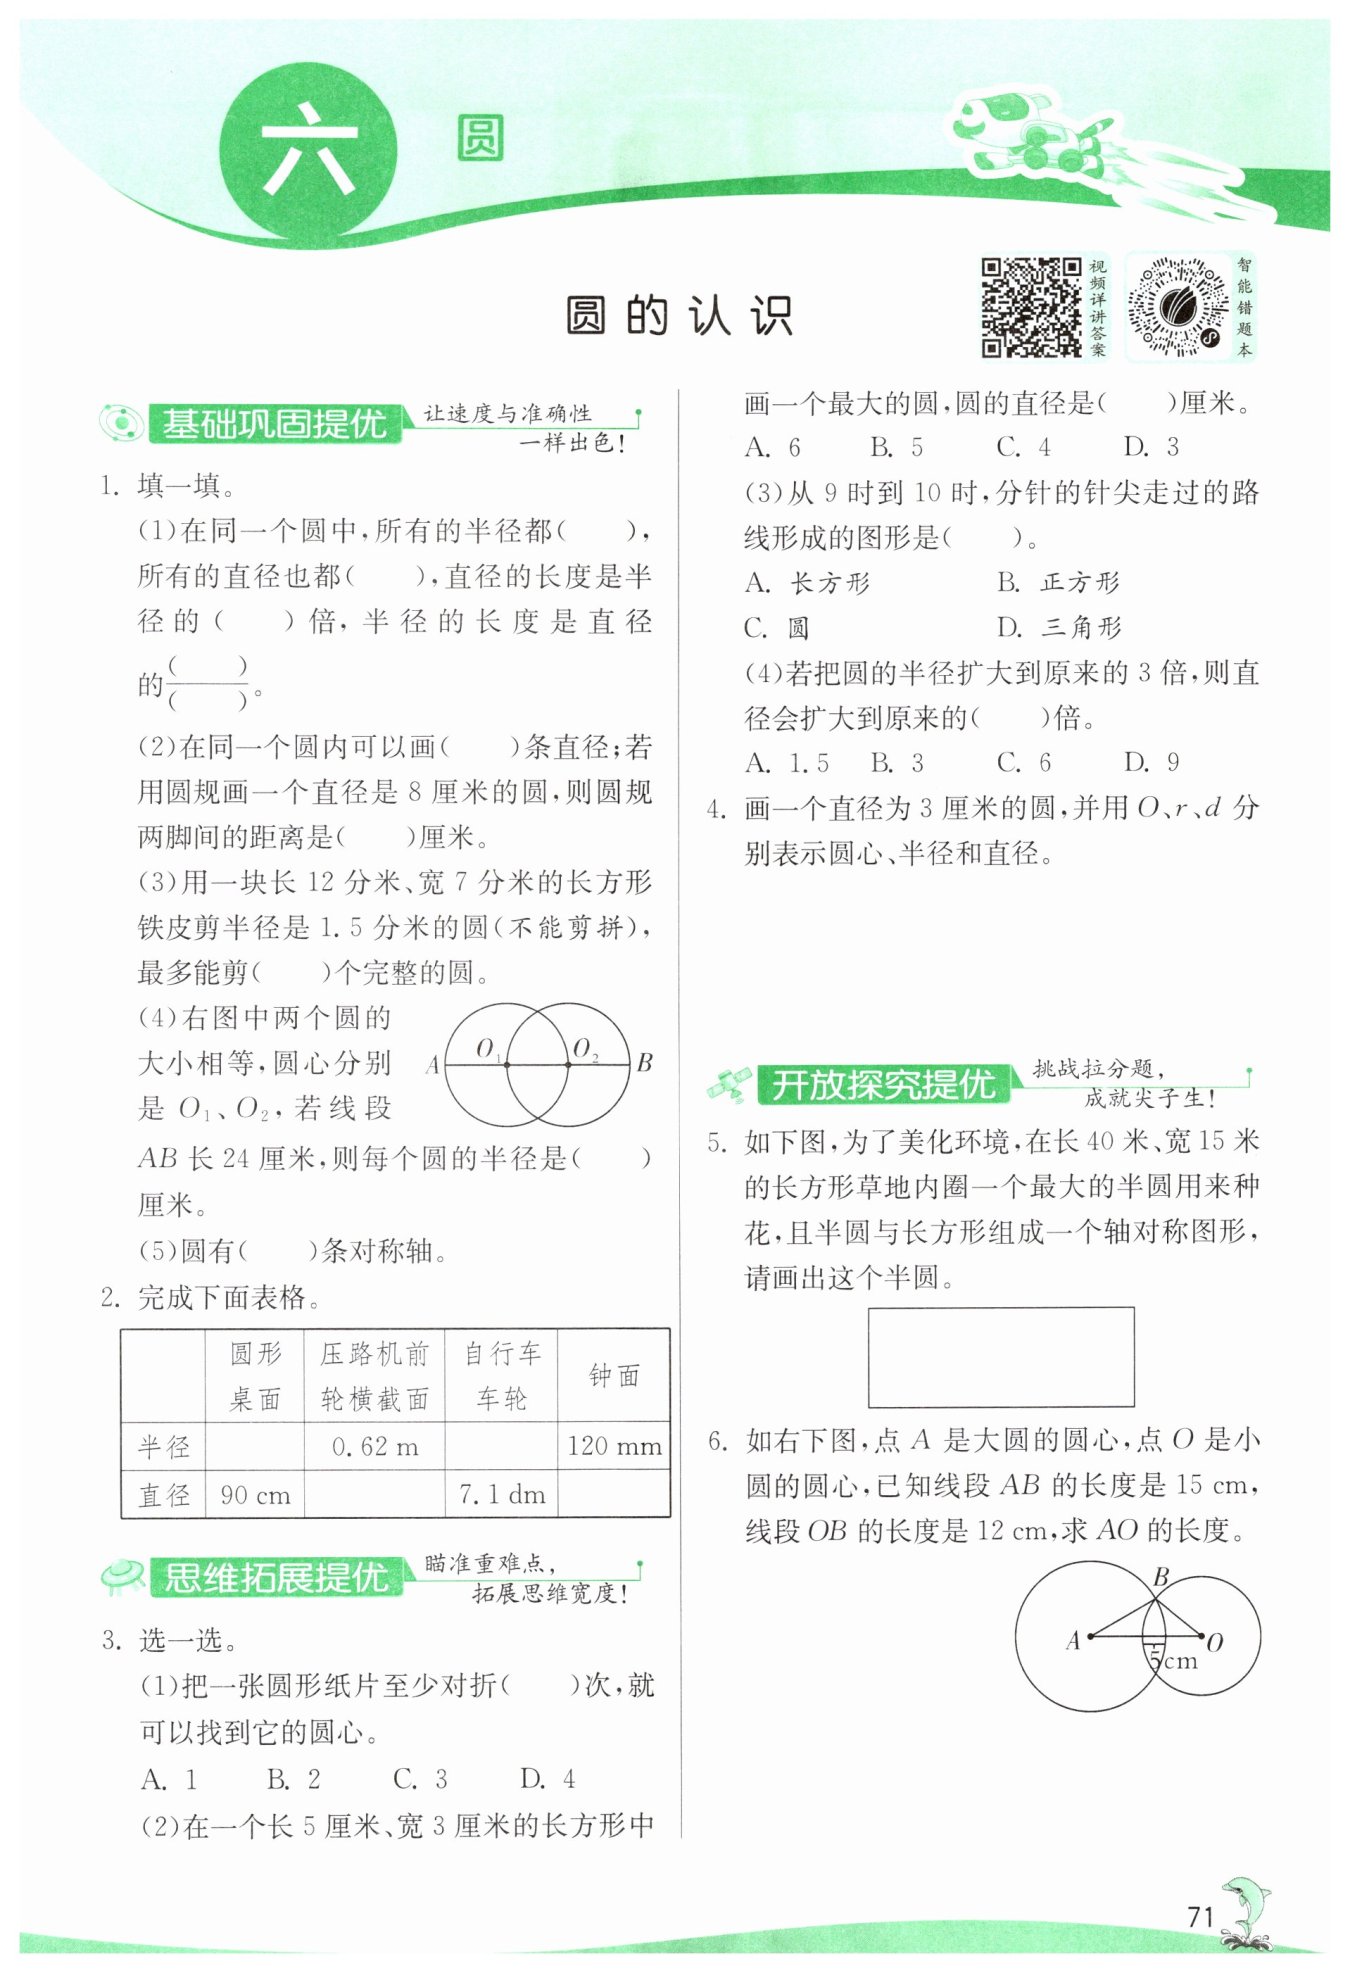 六
圆
圆的认识
视频详讲答案
智能错题本
基础巩固提优
让速度与准确性
一样出色!
1. 填一填。
(1)在同一个圆中,所有的半径都(　　),
所有的直径也都(　　),直径的长度是半
径的(　　)倍,半径的长度是直径
的(　　)/(　　)。
(2)在同一个圆内可以画(　　)条直径;若
用圆规画一个直径是 8 厘米的圆,则圆规
两脚间的距离是(　　)厘米。
(3)用一块长 12 分米、宽 7 分米的长方形
铁皮剪半径是 1.5 分米的圆(不能剪拼),
最多能剪(　　)个完整的圆。
(4)右图中两个圆的
大小相等,圆心分别
是 O₁、O₂,若线段
AB 长 24 厘米,则每个圆的半径是(　　)
厘米。
A O₁ O₂ B
(5)圆有(　　)条对称轴。
2. 完成下面表格。
圆形桌面 压路机前轮横截面 自行车车轮 钟面
半径 0.62 m 120 mm
直径 90 cm 7.1 dm
思维拓展提优
瞄准重难点,
拓展思维宽度!
3. 选一选。
(1)把一张圆形纸片至少对折(　　)次,就
可以找到它的圆心。
A. 1 B. 2 C. 3 D. 4
(2)在一个长 5 厘米、宽 3 厘米的长方形中
画一个最大的圆,圆的直径是(　　)厘米。
A. 6 B. 5 C. 4 D. 3
(3)从 9 时到 10 时,分针的针尖走过的路
线形成的图形是(　　)。
A. 长方形 B. 正方形
C. 圆 D. 三角形
(4)若把圆的半径扩大到原来的 3 倍,则直
径会扩大到原来的(　　)倍。
A. 1.5 B. 3 C. 6 D. 9
4. 画一个直径为 3 厘米的圆,并用 O、r、d 分
别表示圆心、半径和直径。
开放探究提优
挑战拉分题,
成就尖子生!
5. 如下图,为了美化环境,在长 40 米、宽 15 米
的长方形草地内圈一个最大的半圆用来种
花,且半圆与长方形组成一个轴对称图形,
请画出这个半圆。
6. 如右下图,点 A 是大圆的圆心,点 O 是小
圆的圆心,已知线段 AB 的长度是 15 cm,
线段 OB 的长度是 12 cm,求 AO 的长度。
B
A O
5cm
71